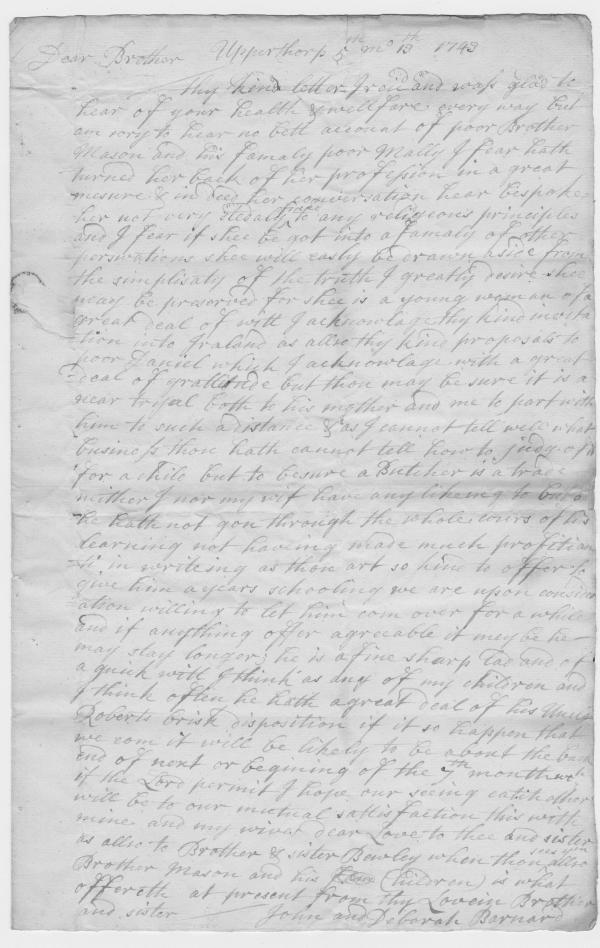 Dear Brother Upperthorp 5th mo 13th 1743
Thy kind letter I rcd and wass glad to
hear of your health & wellfare every way but
am sory to hear no bett account of poor Brother
Mason and his famaly poor Mally I fear hath
turned her back of her profession in a great
mesure & in deed her conversation hear bespoke
her not very to any religeous principles
and I fear if shee be got into a famaly of other
perswations shee will easly be drawn aside from
the simplisaty of the truth I greatly desire shee
may be preserved for shee is a young woman of a
great deal of witt I acknowlage thy kind invita
tion into Iraland as allso thy kind proposals to
poor Daniel which I acknowlage with a great
deal of grattitude but thou may be sure it is a
near tryal both to his mother and me to part with
him to such a distance & as I cannot tell well what
business thou hath cannot tell how to judg of it
for a child but to besure a Butcher is a trade
nither I nor my wif have any likeing to but
he hath not gon through the whole cours of his
learning not having made much profitian
in writeing as thou art so kind to offer to
give him a years schooling we are upon consider
ation willing to let him com over for a while
and if anything offer agreeable it mey be he
may stay longer; he is a fine sharp lad and of
a quick witt I think as any of my children and
I think often he hath a great deal of his Uncle
Roberts brisk disposition if it so happen that
we com it will be likely to be about the back
end of next or begining of the 7th month wch
if the Lord permit I hope our seeing eatch other
will be to our mutual sattisfaction this with
mine and my wives dear Love to thee and sister
as allso to Brother & sister Bewley when thou sees ym allso
Brother Mason and his (Children) is what
offereth at present from thy Lovein Brother
and sister John and Deborah Barnard